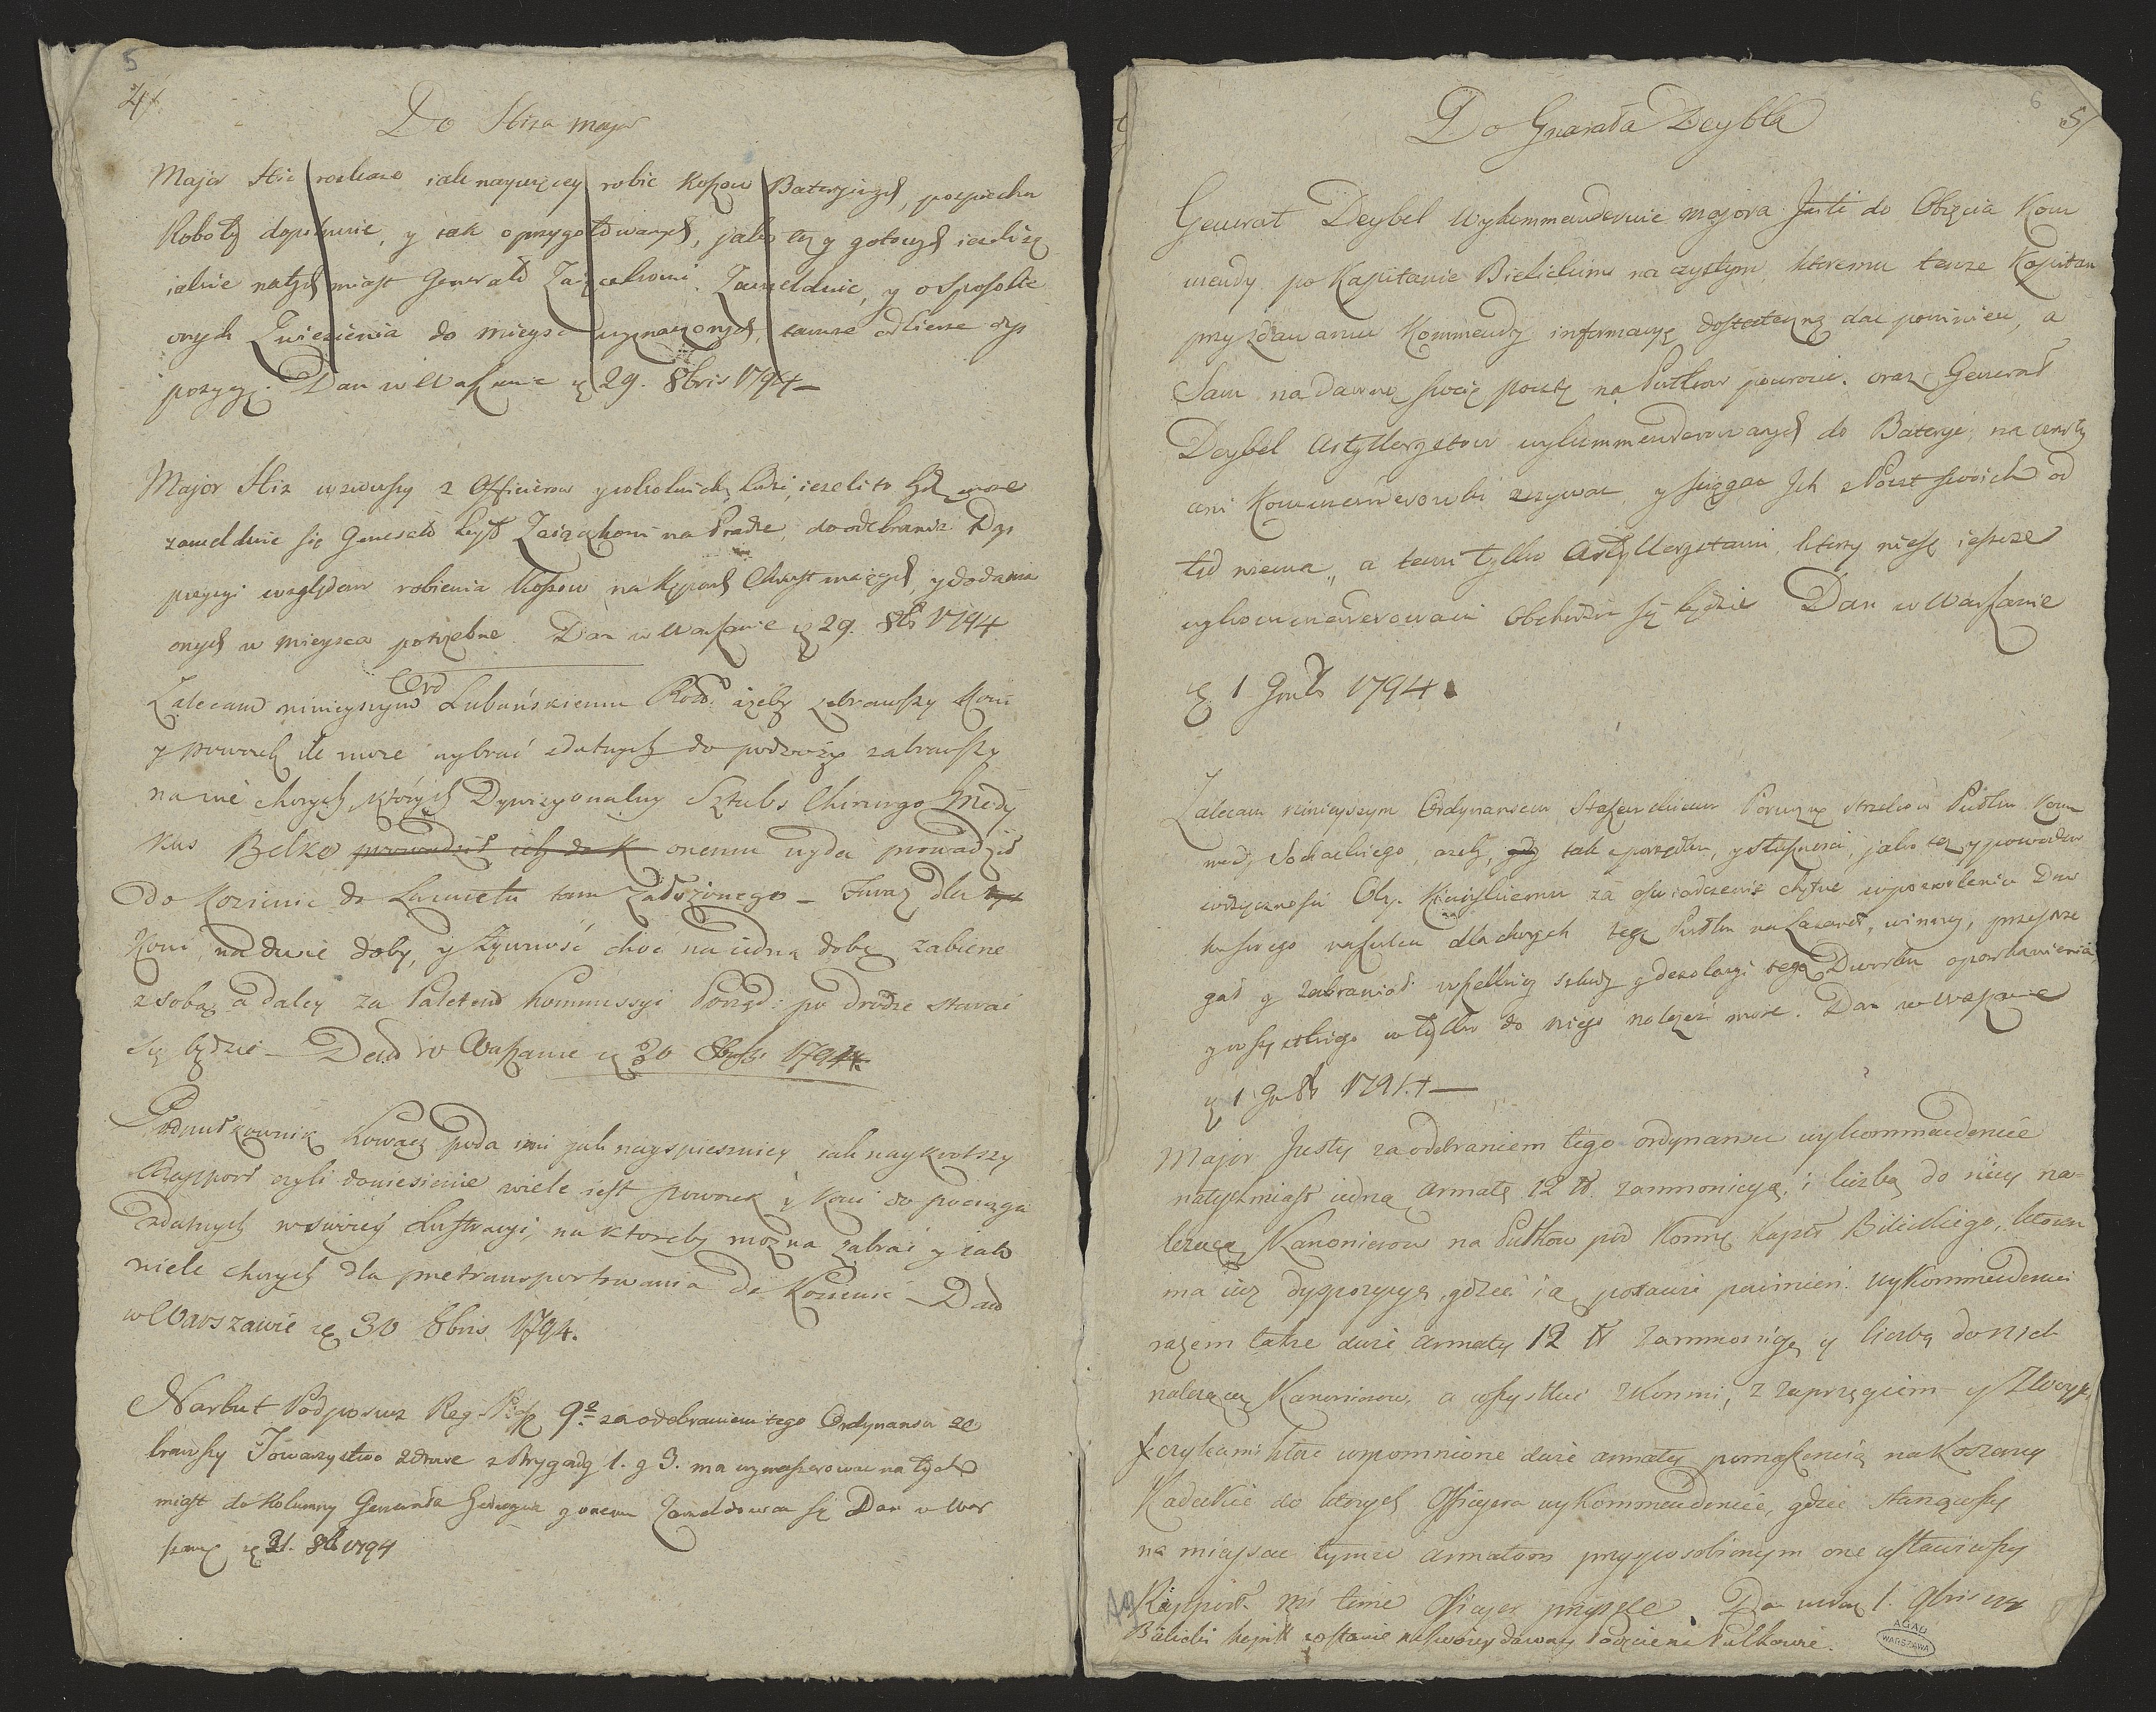 5
4/
Do Hiza major
Major Hiz rozkaże iak naywięcey robic Koszow Bateryinych, pospiechu
Roboty dopilnuie, y tak o przygotowanych, jako też y gotowych
natychmiast Generałowi Zaiączkowi Zamelduie, y o sposobie
onych Zwiezienia do mieysc wyznaczonych, tamże odbierze dys
pozycyę. Dan w Warszawie d 29. 8bris 1794
Major Hiz wziowszy z Officierow y zdolnich ludzi, ieżeli to być może
zamelduie się Generało Leyt Zaiączkowi na Pradze, do odebrania Dys
pozycyi względem robienia Koszow na Kępach Chrust maiących y dodania
onych w mieysca potrzebne. Dan w Warszawie d 29. 8bris 1794
Zalecam ninieyszym Ord Lubańskiemu ażeby zebrawszy Koni
y powozek ile może wybrać zdatnych do podroży zabrawszy
na nie chorych, których Dywizyonalny Sztabs Chirurgo Medy
kus Belke prowadził ich do K onemu wyda prowadził
do Kozienic do Lazaretu tam Założonego – Furaz dla tych
Koni, na dwie doby, y żywność choć na iedną dobę zabierze
z sobą a daley za Paletem Kommissyi Porząd: po drodze starać
się będzie – Dan w Warszawie d 30 8bris 1794.
Podpułkownik Kowacz poda mi jak nayspieszniey iak naykrotszy
Rapport czyli doniesienie wiele jest powozek y koni do pociągu
zdatnych w swoiey Lustracyi, na ktoreby można zabrać y iak
wiele chorych dla przetransportowania do Kozienic – Dan
w Warszawie d 30 8bris 1794.
Narbut Podporucz Reg. 9º za odebraniem tego Ordynansu ze
brawszy Towarzystwo zdrowe z Brygady 1. y 3. ma wymaszerować natych
miast do Kolumny Generała y onemu Zameldować się Dan w War
szawie d 31. 8bris 1794
6
5/
Do Gnerała Deybla
Generał Deybel wykommenderuie majora Justi do Obięcia Kom
mendy po Kapitanie Bielickim na czystym, ktoremu tenże Kapitan
przy zdawaniu Kommendy informacyę dostateczną dać powinien, a
Sam na dawną swoię pocztę na Pułkow powroci. oraz Generał
Deybel Artyllerzystow wykommenderowanych do Bateryi, na
ani Kommenderowki wzywać, y ściągać Ich z Poczt swoich od
tąd niema, a temi tylko Artyllerzystami, ktorzy nie są ieszcze
wykommenderowani obchodzić się będzie Dan w Warszawie
d 1 9bris 1794.
Zalecam ninieyszym Ordynansem Porucznę strzelcow Pułku Kom
mendy Sochackiego, ażeby, gdy tak z porządku, y słuszności, jako też y powodow
wdzięczności Oby. Kicińskiemu za oświadczenie chętne wypozwolenia Dwo
rku swego dla chorych tego Pułku na Lazaret, winney, przestrze
gał y zabraniał wszelkiey szkody y dezolacyi tego Dworku oporkanienia
y wszystkiego co tylko do niego należeć może. Dan w Warszawie
d 1 9bris 1794 –
Major Justy za odebraniem tego ordynansu wykommenderuie
natychmiast iedną Armatę 12 ℔ z ammonicyą, i liczbą do niey na=
leżącą Kanonierow na Pułkow pod Kommę Kapit Bilickiego, ktoren
ma iuż dyspozycyę, gdzie ią postawić powinien. wykommenderuie
razem także dwie armaty 12 ℔ z ammonicyą y liczbą do nich
należącą Kanonierow, a wszystkie z końmi, z zaprzęgiem y
ktore wspomnione dwie armaty pomaszeruią na Koszary
Kadeckie do ktorych Officyera wykommenderuie, gdzie stanąwszy
na mieyscu tymże armatom przysposobionym one ustawiwszy
Rapport mi tenże Officyer przyszle. Dan w Wars 1. 9bris 1794
Bilicki kapit zostanie na swoiey dawney Poczcie na Pułkowie.
AGAD
WARSZAWA